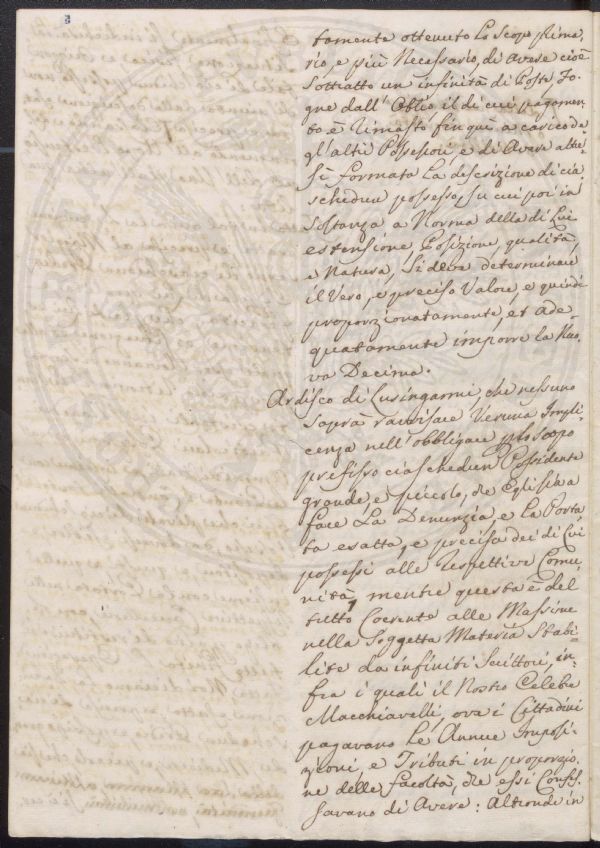 5
tamente ottenuto lo scopo prima,
rio, e più Necessario, di avere cioè
sottratto un infinità di Poste, Fo-
gne dall' Oblio il di cui pagamen-
to è rimasto fin quì a carico de
gl'altri Possessori, e di Avere altre-
sì formata la descrizione di cia,
schedun possesso, su cui poi in
sostanza a Norma della di Lui
estensione, Posizione, qualità,
e Natura, si deva determinare
il Vero, e preciso Valore, e quindi
proporzionatamente, et ade-
quatamente imporre la Nuo,
va Decima.
Ardisco di Lusingarmi, che nessuno
saprà ravvisare Veruna Impli-
cenza nell'obbligare lo scopo
prefisso ciaschedun Possidente
grande, e piccolo, che Egli sia a
fare La Denunzia, e la Porta
ta esatta, e precisa dei di Lui
possessi alle respettive Comu,
nità, mentre questa è del
tutto Coerente alle Massime
nella Soggetta Materia Stabi-
lite da infiniti Scrittori, in-
fra i quali il Nostro Celebre
Macchiavelli, ove i Cittadini
pagavano le Annue Imposi-
zioni, e Tributi in proporzio,
ne delle facoltà, che essi Confes-
savano di Avere: Altronde in